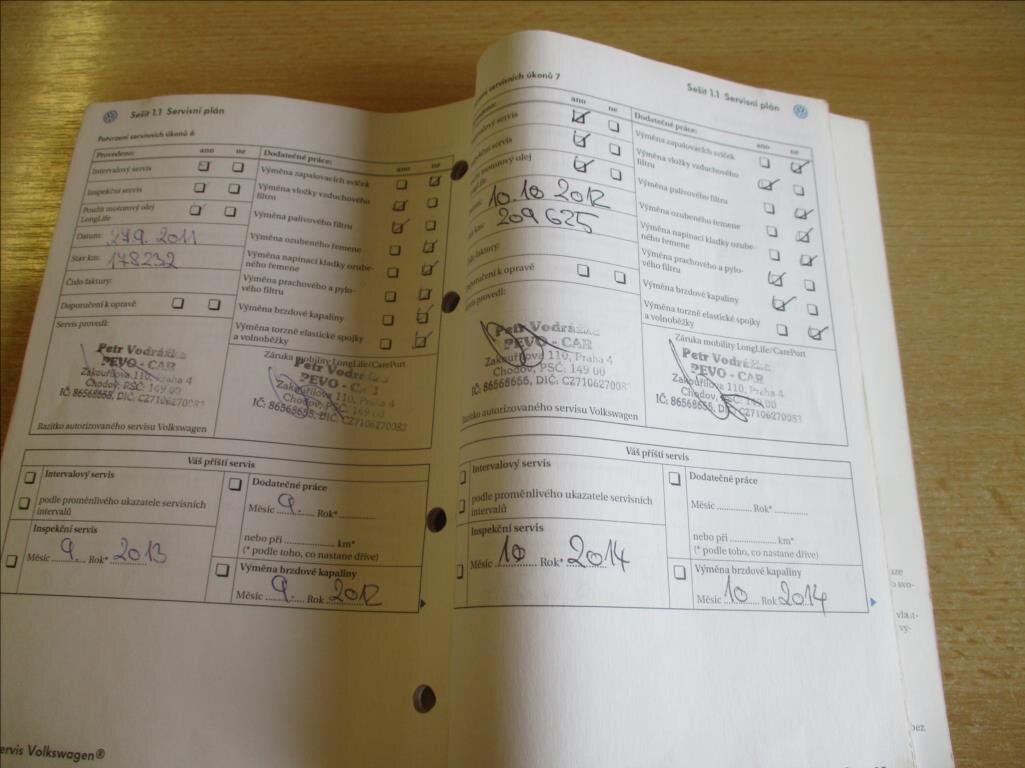 Sešit 1.1 Servisní plán
Potvrzení servisních úkonů 6
Provedeno: ano ne
Intervalový servis
Inspekční servis
Použit motorový olej
LongLife
Datum: 27.9. 2011
Stav km: 178232
Číslo faktury:
Doporučení k opravě
Servis provedl:
Petr Vodrážka
PEVO - CAR
Zakouřilova 110, Praha 4
Chodov, PSČ: 149 00
IČ: 86568655, DIČ: CZ7106270083
Razítko autorizovaného servisu Volkswagen
Dodatečné práce: ano ne
Výměna zapalovacích svíček
Výměna vložky vzduchového
filtru
Výměna palivového filtru
Výměna ozubeného řemene
Výměna napínací kladky ozube-
ného řemene
Výměna prachového a pylo-
vého filtru
Výměna brzdové kapaliny
Výměna torzně elastické spojky
a volnoběžky
Záruka mobility LongLife/CarePort
Petr Vodrážka
PEVO - CAR
Zakouřilova 110, Praha 4
Chodov, PSČ: 149 00
IČ: 86568655, DIČ: CZ7106270083
Váš příští servis
Intervalový servis
podle proměnlivého ukazatele servisních
intervalů
Inspekční servis
Měsíc 9. Rok* 2013
Dodatečné práce
Měsíc 9. Rok*
nebo při km*
(* podle toho, co nastane dříve)
Výměna brzdové kapaliny
Měsíc 9. Rok 2012
servis Volkswagen®
Sešit 1.1 Servisní plán
servisních úkonů 7
ano ne
servis
servis
motorový olej
10.10 2012
209625
faktury:
k opravě
servis provedl:
Petr Vodrážka
PEVO - CAR
Zakouřilova 110, Praha 4
Chodov, PSČ: 149 00
IČ: 86568655, DIČ: CZ7106270083
Razítko autorizovaného servisu Volkswagen
Dodatečné práce: ano ne
Výměna zapalovacích svíček
Výměna vložky vzduchového
filtru
Výměna palivového filtru
Výměna ozubeného řemene
Výměna napínací kladky ozube-
ného řemene
Výměna prachového a pylo-
vého filtru
Výměna brzdové kapaliny
Výměna torzně elastické spojky
a volnoběžky
Záruka mobility LongLife/CarePort
Petr Vodrážka
PEVO - CAR
Zakouřilova 110, Praha 4
Chodov, PSČ: 149 00
IČ: 86568655, DIČ: CZ7106270083
Váš příští servis
Intervalový servis
podle proměnlivého ukazatele servisních
intervalů
Inspekční servis
Měsíc 10 Rok* 2014
Dodatečné práce
Měsíc Rok*
nebo při km*
(* podle toho, co nastane dříve)
Výměna brzdové kapaliny
Měsíc 10 Rok 2014